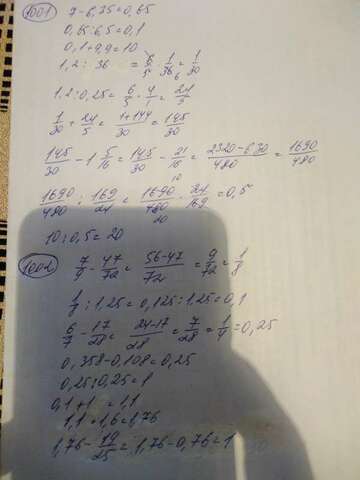 1001 7-6,35=0,65
0,65:6,5=0,1
0,1+9,9=10
1,2:36=6/5·1/36=1/30
1,2:0,25=6/5·4/1=24/5
1/30+24/5=1+144/30=145/30
145/30-1 5/16=145/30-21/16=2320-630/480=1690/480
1690/480:169/24=1690/480·24/169=0,5
10:0,5=20
1002 7/9-47/72=56-47/72=9/72=1/8
1/8:1,25=0,125:1,25=0,1
6/7-17/28=24-17/28=7/28=1/4=0,25
0,358-0,108=0,25
0,25:0,25=1
0,1+1=1,1
1,1·1,6=1,76
1,76-19/25=1,76-0,76=1